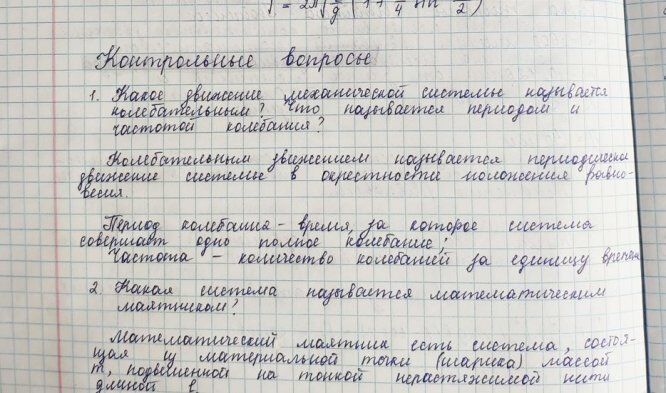 = 2π√ g (1 + 1/4 sin 2)
Контрольные вопросы
1. Какое движение механической системы называется
колебательным? Что называется периодом и
частотой колебания?
Колебательным движением называется периодическое
движение системы в окрестности положения равно-
весия.
Период колебания - время, за которое система
совершает одно полное колебание;
Частота - количество колебаний за единицу времени
2. Какая система называется математическим
маятником?
Математический маятник есть система, состоя-
щая из материальной точки (шарика) массой
m, подвешенной на тонкой нерастяжимой нити
длиной l.